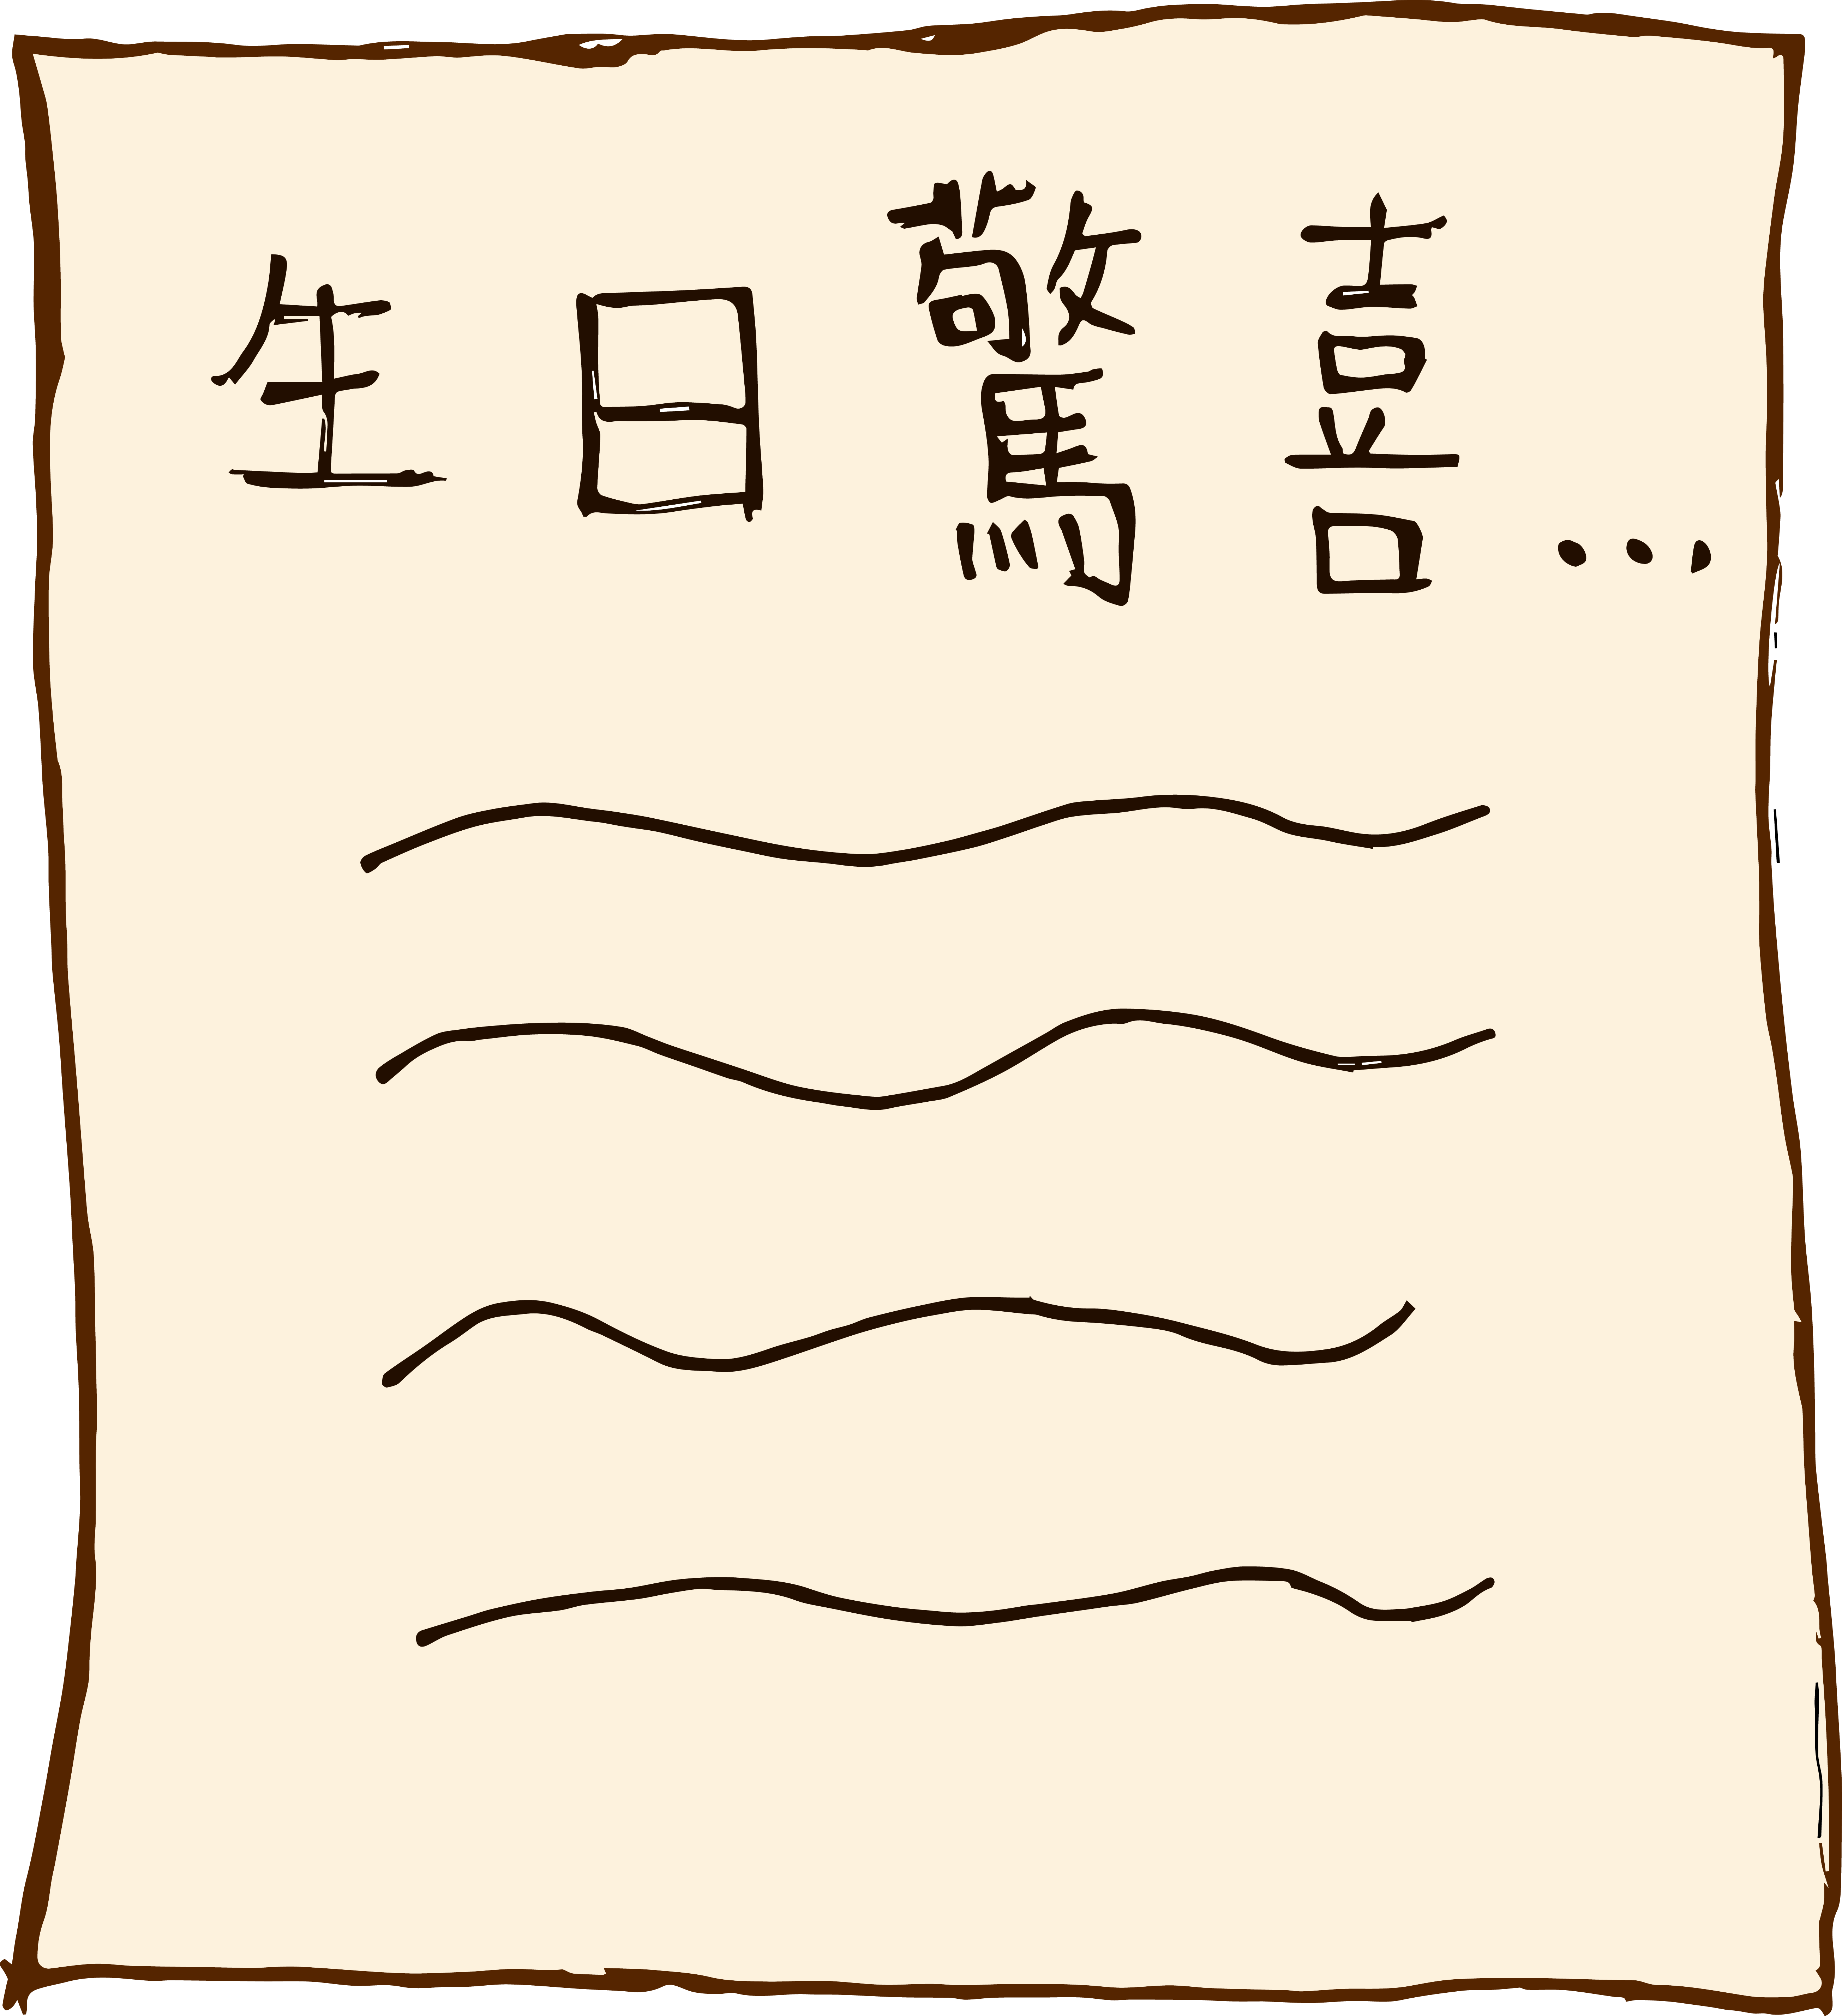 生日驚喜...